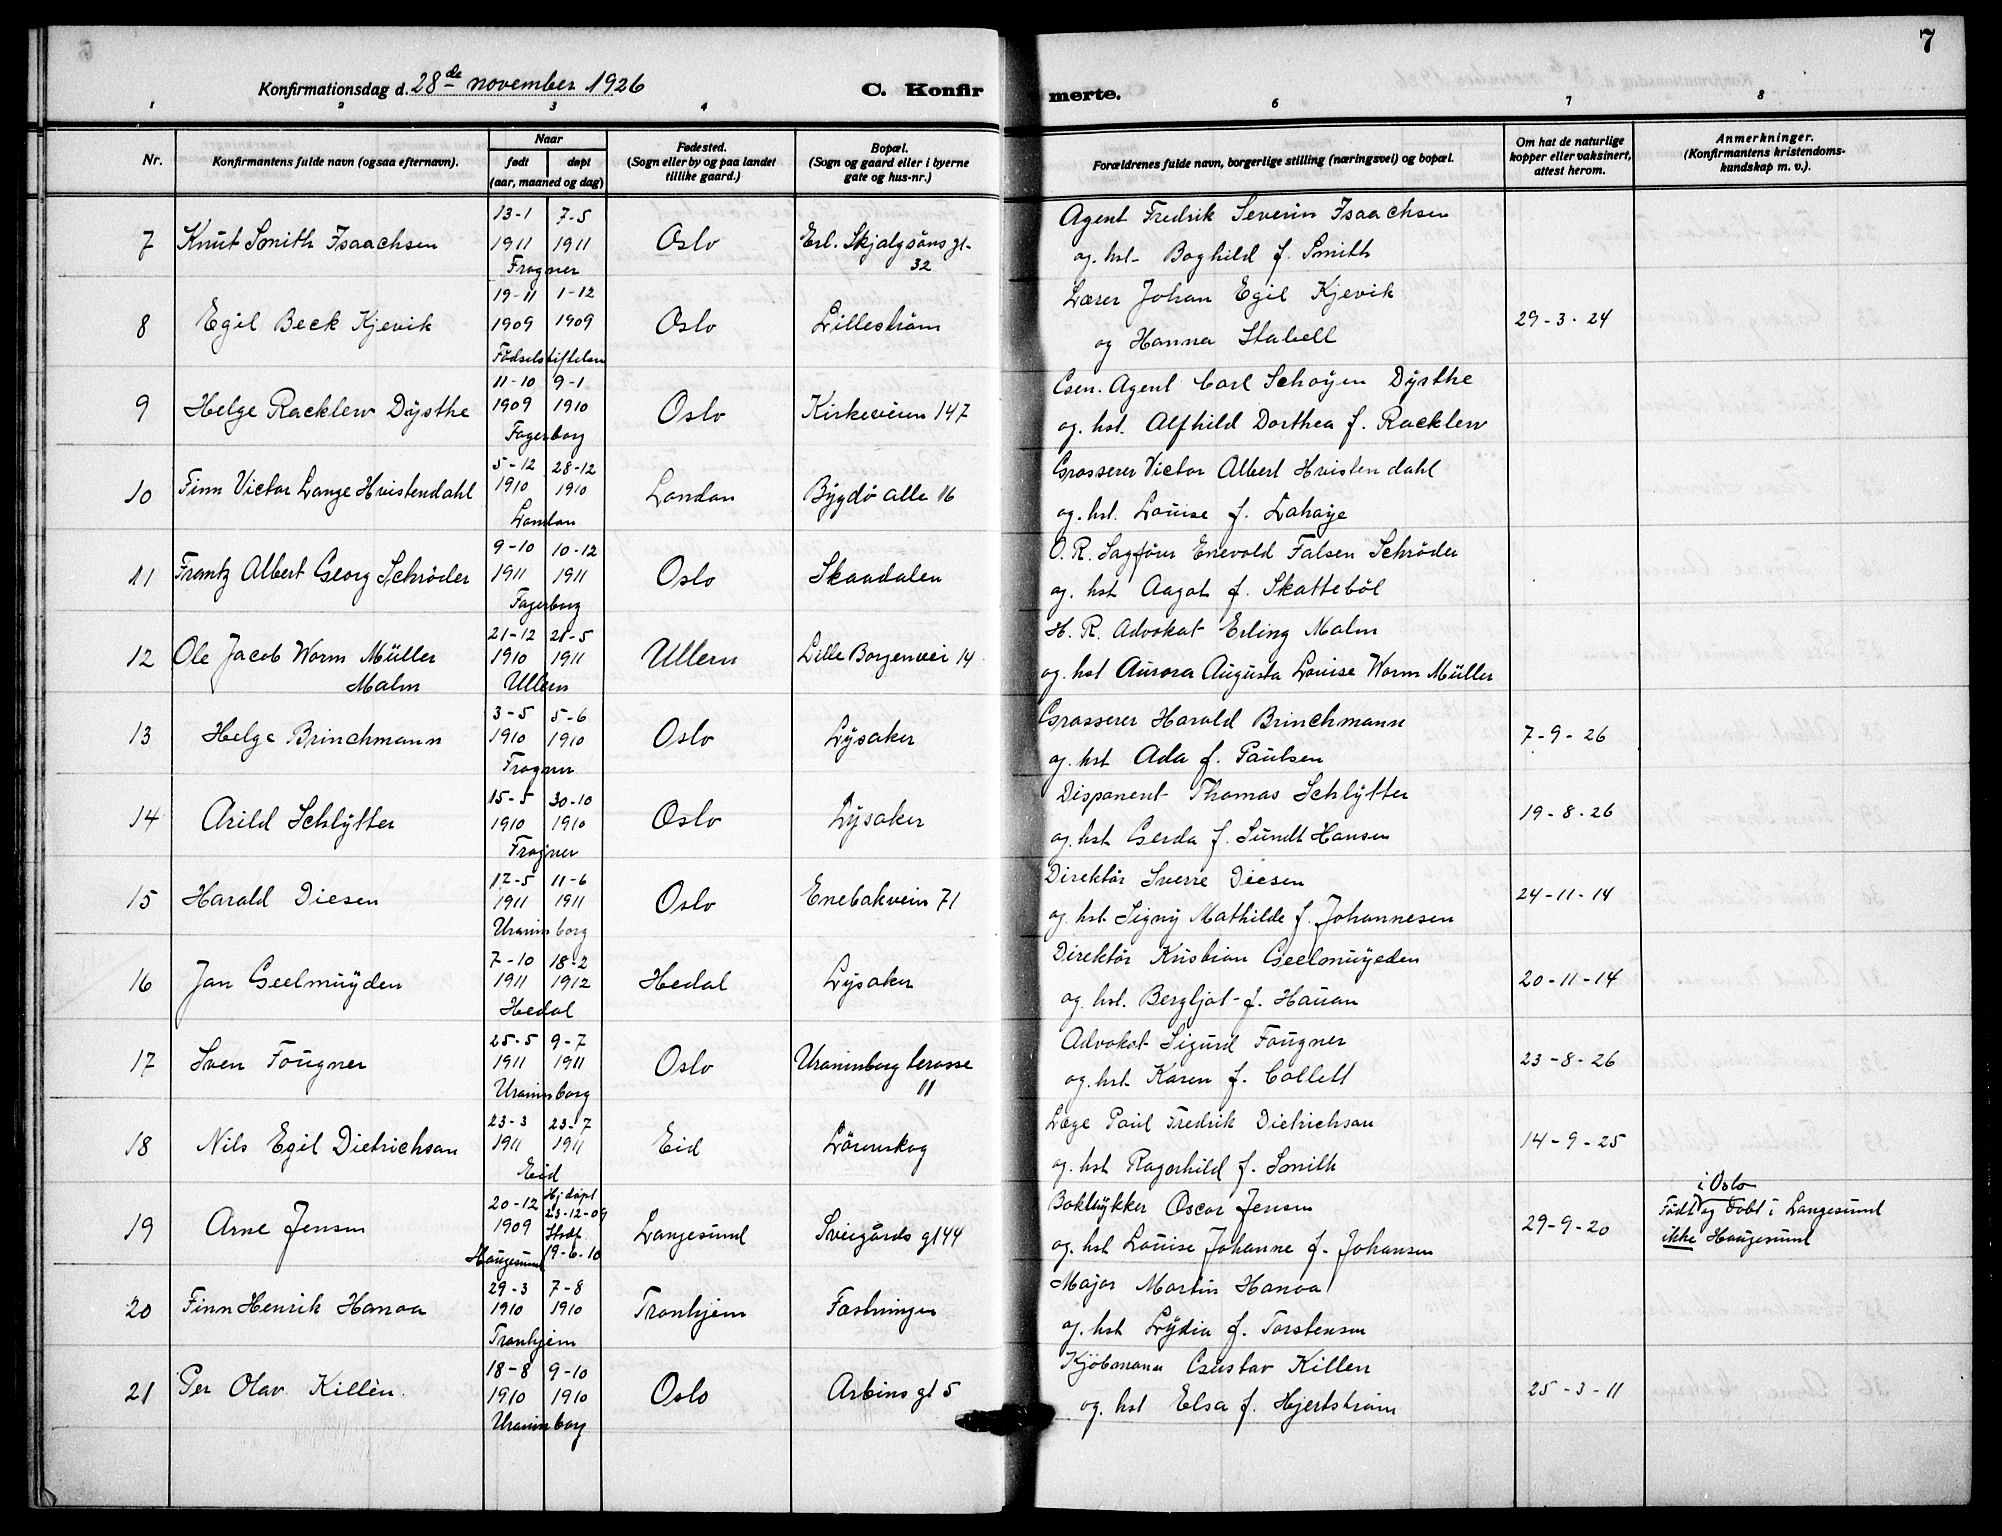 7
Konfirmationsdag d. 28de november 1926
C. Konfirmerte.
1 2 3 4 5 6 7 8
Nr.
Konfirmantens fulde navn (ogsaa efternavn).
Naar
født døpt
(aar, maaned og dag)
Fødested.
(Sogn eller by og paa landet
tillike gaard.)
Bopæl.
(Sogn og gaard eller i byerne
gate og hus-nr.)
Forældrenes fulde navn, borgerlige stilling (næringsvei) og bopæl.
Om hat de naturlige
kopper eller vaksinert,
attest herom.
Anmerkninger.
(Konfirmantens kristendoms-
kundskap m. v.).
7 Knut Smith Isaachsen
13-1 7-5
1911 1911
Frogner
Oslo
Erl. Skjalgsöns gt-
32
Agent Fredrik Severin Isaachsen
og. hst- Boghild f. Smith
8 Egil Beck Kjevik
19-11 1-12
1909 1909
Födselstiftelsen
Oslo
Lilleström
Lærer Johan Egil Kjevik
og Hanna Stabell
29-3-24
9 Helge Racklew Dysthe
11-10 9-1
1909 1910
Fagerborg
Oslo
Kirkeveien 147
Gen. Agent Carl Schøyen Dysthe
og. hst. Alfhild Dorthea f. Racklew
10 Finn Victor Lange Hvistendahl
5-12 28-12
1910 1910
London
London
Bygdö alle 16
Grosserer Victor Albert Hvistendahl
og. hst. Louise f. Lahaye
11 Frantz Albert Georg Schröder
9-10 10-12
1911 1911
Fagerborg
Oslo
Skaadalen
O. R. Sagförer Enevold Falsen Schröder
og. hst Aagot f. Skatteböl
12 Ole Jacob Worm Müller
Malm
21-12 21-5
1910 1911
Ullern
Ullern
Lille Borgenvei 14
H. R. Advokat Erling Malm
og. hst Aurora Augusta Louise Worm Müller
13 Helge Brinchmann
3-5 5-6
1910 1910
Frogner
Oslo
Lysaker
Grosserer Harald Brinchmann
og. hst Ada f. Paulsen
7-9-26
14 Arild Schlytter
15-5 30-10
1910 1910
Frogner
Oslo
Lysaker
Disponent Thomas Schlytter
og. hst Gerda f. Sundt Hansen
19-8-26
15 Harald Diesen
17-5 11-6
1911 1911
Uraninsborg
Oslo
Enebakvein 71
Direktör Sverre Diesen
og. hst. Signy Mathilde f. Johannesen
24-11-14
16 Jan Geelmuyden
7-10 18-2
1911 1912
Hedal
Hedal
Lysaker
Direktör Kristian Geelmuyeden
og. hst. Bergljot- f. Hauan
20-11-14
17 Sven Fougner
25-5 9-7
1911 1911
Uraninsborg
Oslo
Uraninborg terasse
11
Advokat Sigurd Fougner
og. hst. Karen f. Collett
23-8-26
18 Nils Egil Dietrichson
23-3 23-7
1911 1911
Eid
Eid
Lörenskog
Læge Paul Fredrik Dietrichson
og. hst Ragnhild f. Smith
14-9-25
19 Arne Jensen
20-12 Hj döpt
1909 23-12-09
Stadf.
Haugesund 19-6-10
Langesund
Sveigårds gt 44
Boktrykker Oscar Jensen
og. hst Louise Johanne f. Johansen
29-9-20
i Oslo
Födt og Döbt i Langesund
ikke Haugesund
20 Finn Henrik Hanoa
29-3 7-8
1910 1910
Tronhjem
Tronhjem
Fæstningen
Major Martin Hanoa
og. hst Lydia f. Torstensen
21 Per Olav Killèn.
18-8 9-10
1910 1910
Uraninsborg
Oslo
Arbins gt 5
Kjöbmann Gustav Killen
og. hst Elsa f. Hjertström
25-3-11